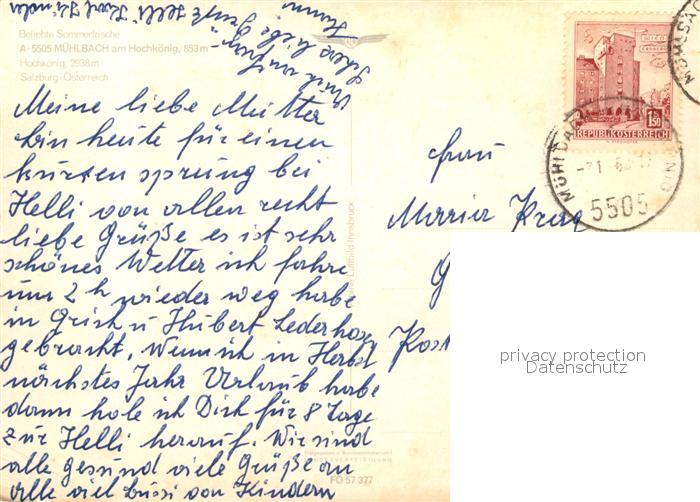 Beliebte Sommerfrische
A-5505 MÜHLBACH am Hochkönig, 853m
Hochkönig, 2938m
Salzburg-Österreich
Meine liebe Mutter
bin heute für einen
kurzen sprung bei
Helli von allen recht
liebe Grüße es ist sehr
schönes Wetter ich fahre
um 2 h wieder weg habe
in Grish u Hubert Lederhose
gebracht. Wenn ich in Herbst
nächstes Jahr Urlaub habe
dann hole ich Dich für 8 Tage
zur Helli herauf. Wir sind
alle gesund viele Grüße an
alle viel bussi von Kindern
Luftbild Innsbruck
FO 57 377
WIEN
ERDBERG
1.50
REPUBLIK ÖSTERREICH
5505
Frau
Maria
privacy protection
Datenschutz